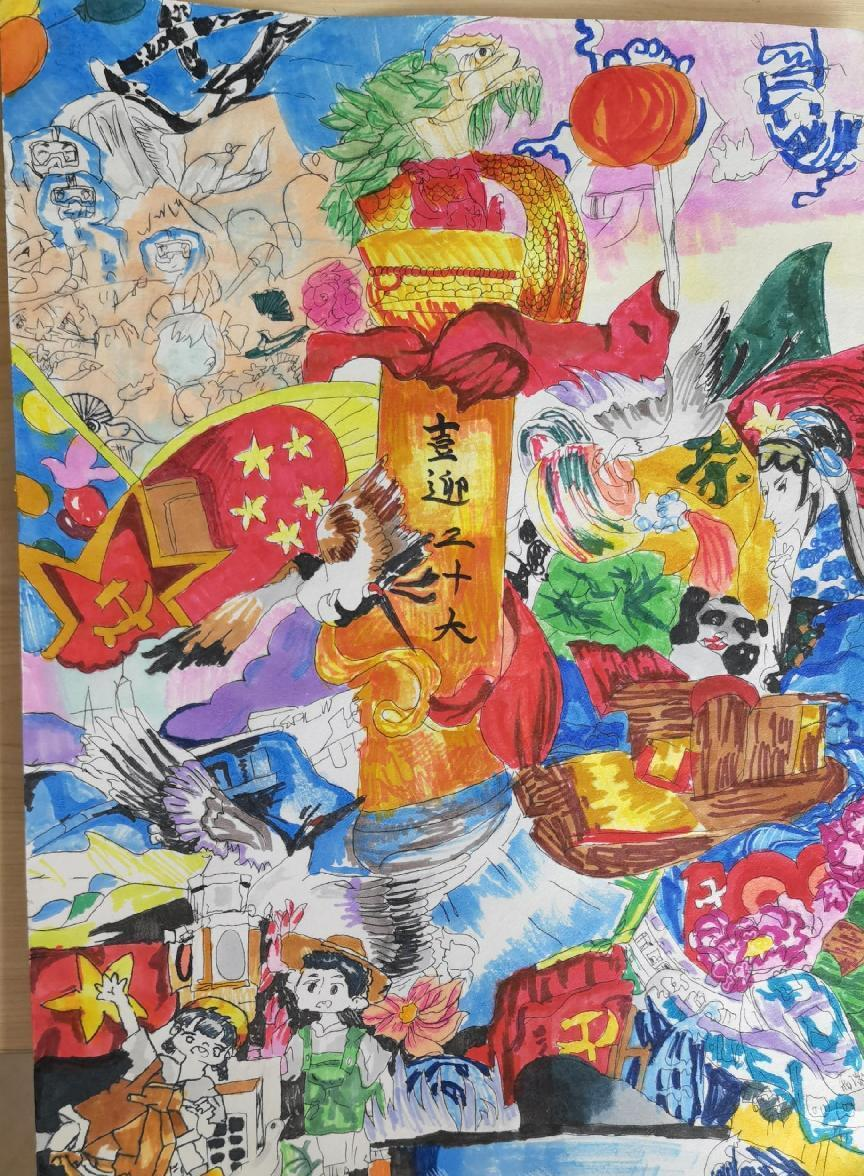 喜迎二十大